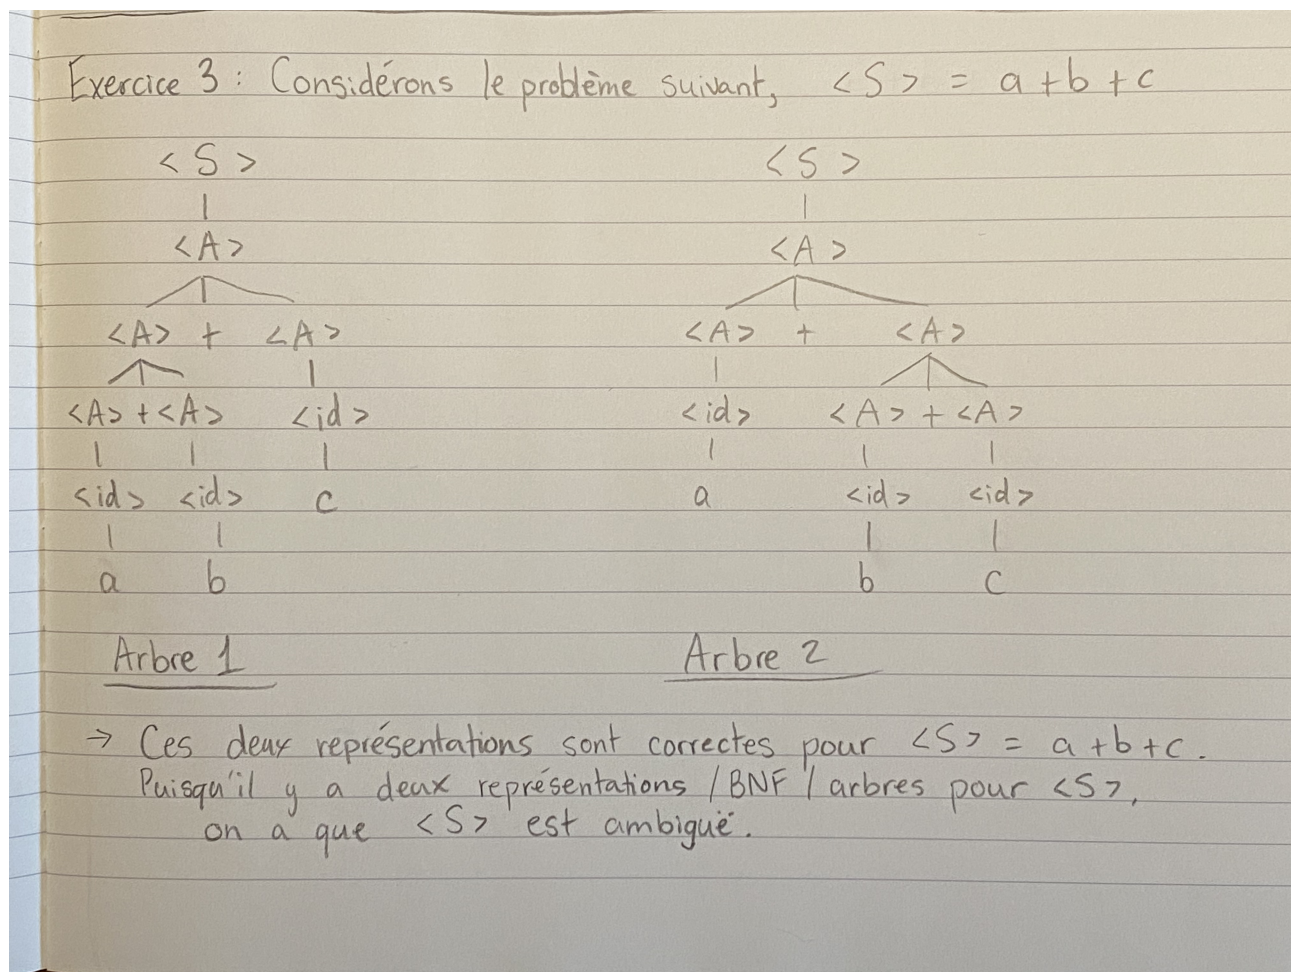 Exercice 3 : Considérons le problème suivant, <S> = a + b + c
<S> <S>
<A> <A>
<A> + <A> <A> + <A>
<A> + <A> <id> <id> <A> + <A>
<id> <id> c a <id> <id>
a b b c
Arbre 1 Arbre 2
→ Ces deux représentations sont correctes pour <S> = a + b + c.
Puisqu'il y a deux représentations / BNF / arbres pour <S>,
on a que <S> est ambiguë.